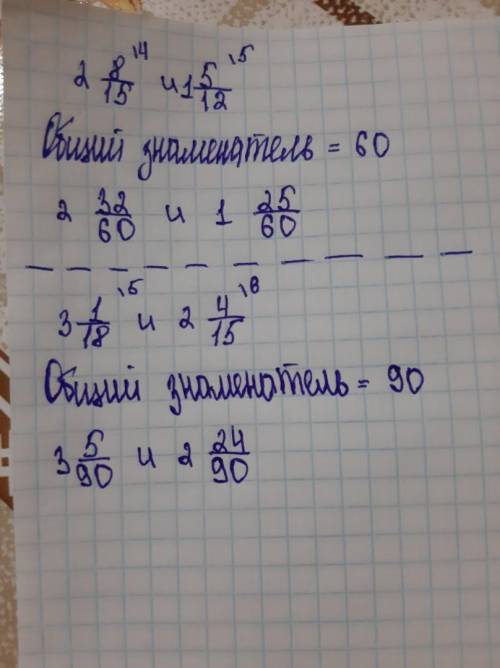 2 8/15 \4 и 1 5/12 \5
Общий знаменатель = 60
2 32/60 и 1 25/60
3 1/18 \5 и 2 4/15 \6
Общий знаменатель = 90
3 5/90 и 2 24/90